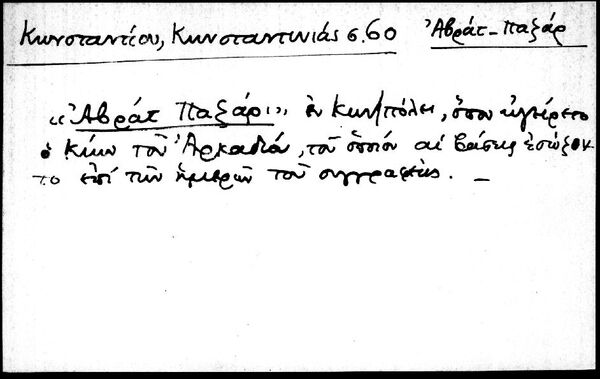 Κωνσταντίου, Κωνσταντινιάς σ.60 Ἀβράτ-Παζάρ
«Ἀβράτ Παζάρι» ἐν Κων/πόλει, ὅπου ὑψείρετο
ὁ κίων τοῦ Ἀρκαδίου, τοῦ ὁποίου αἱ βάσεις ἐσώζον
το ἐπί τῶν ἡμερῶν τοῦ συγγραφέως. _